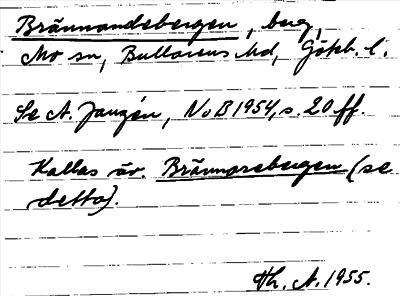 Brännandsbergen, berg,
Mo sn, Bullarens hd, Göteb. l.
Se A. Janzén, NoB 1954, s. 20 ff.
Kallas äv. Brännarsbergen (se
detta).
Hh. A. 1955.